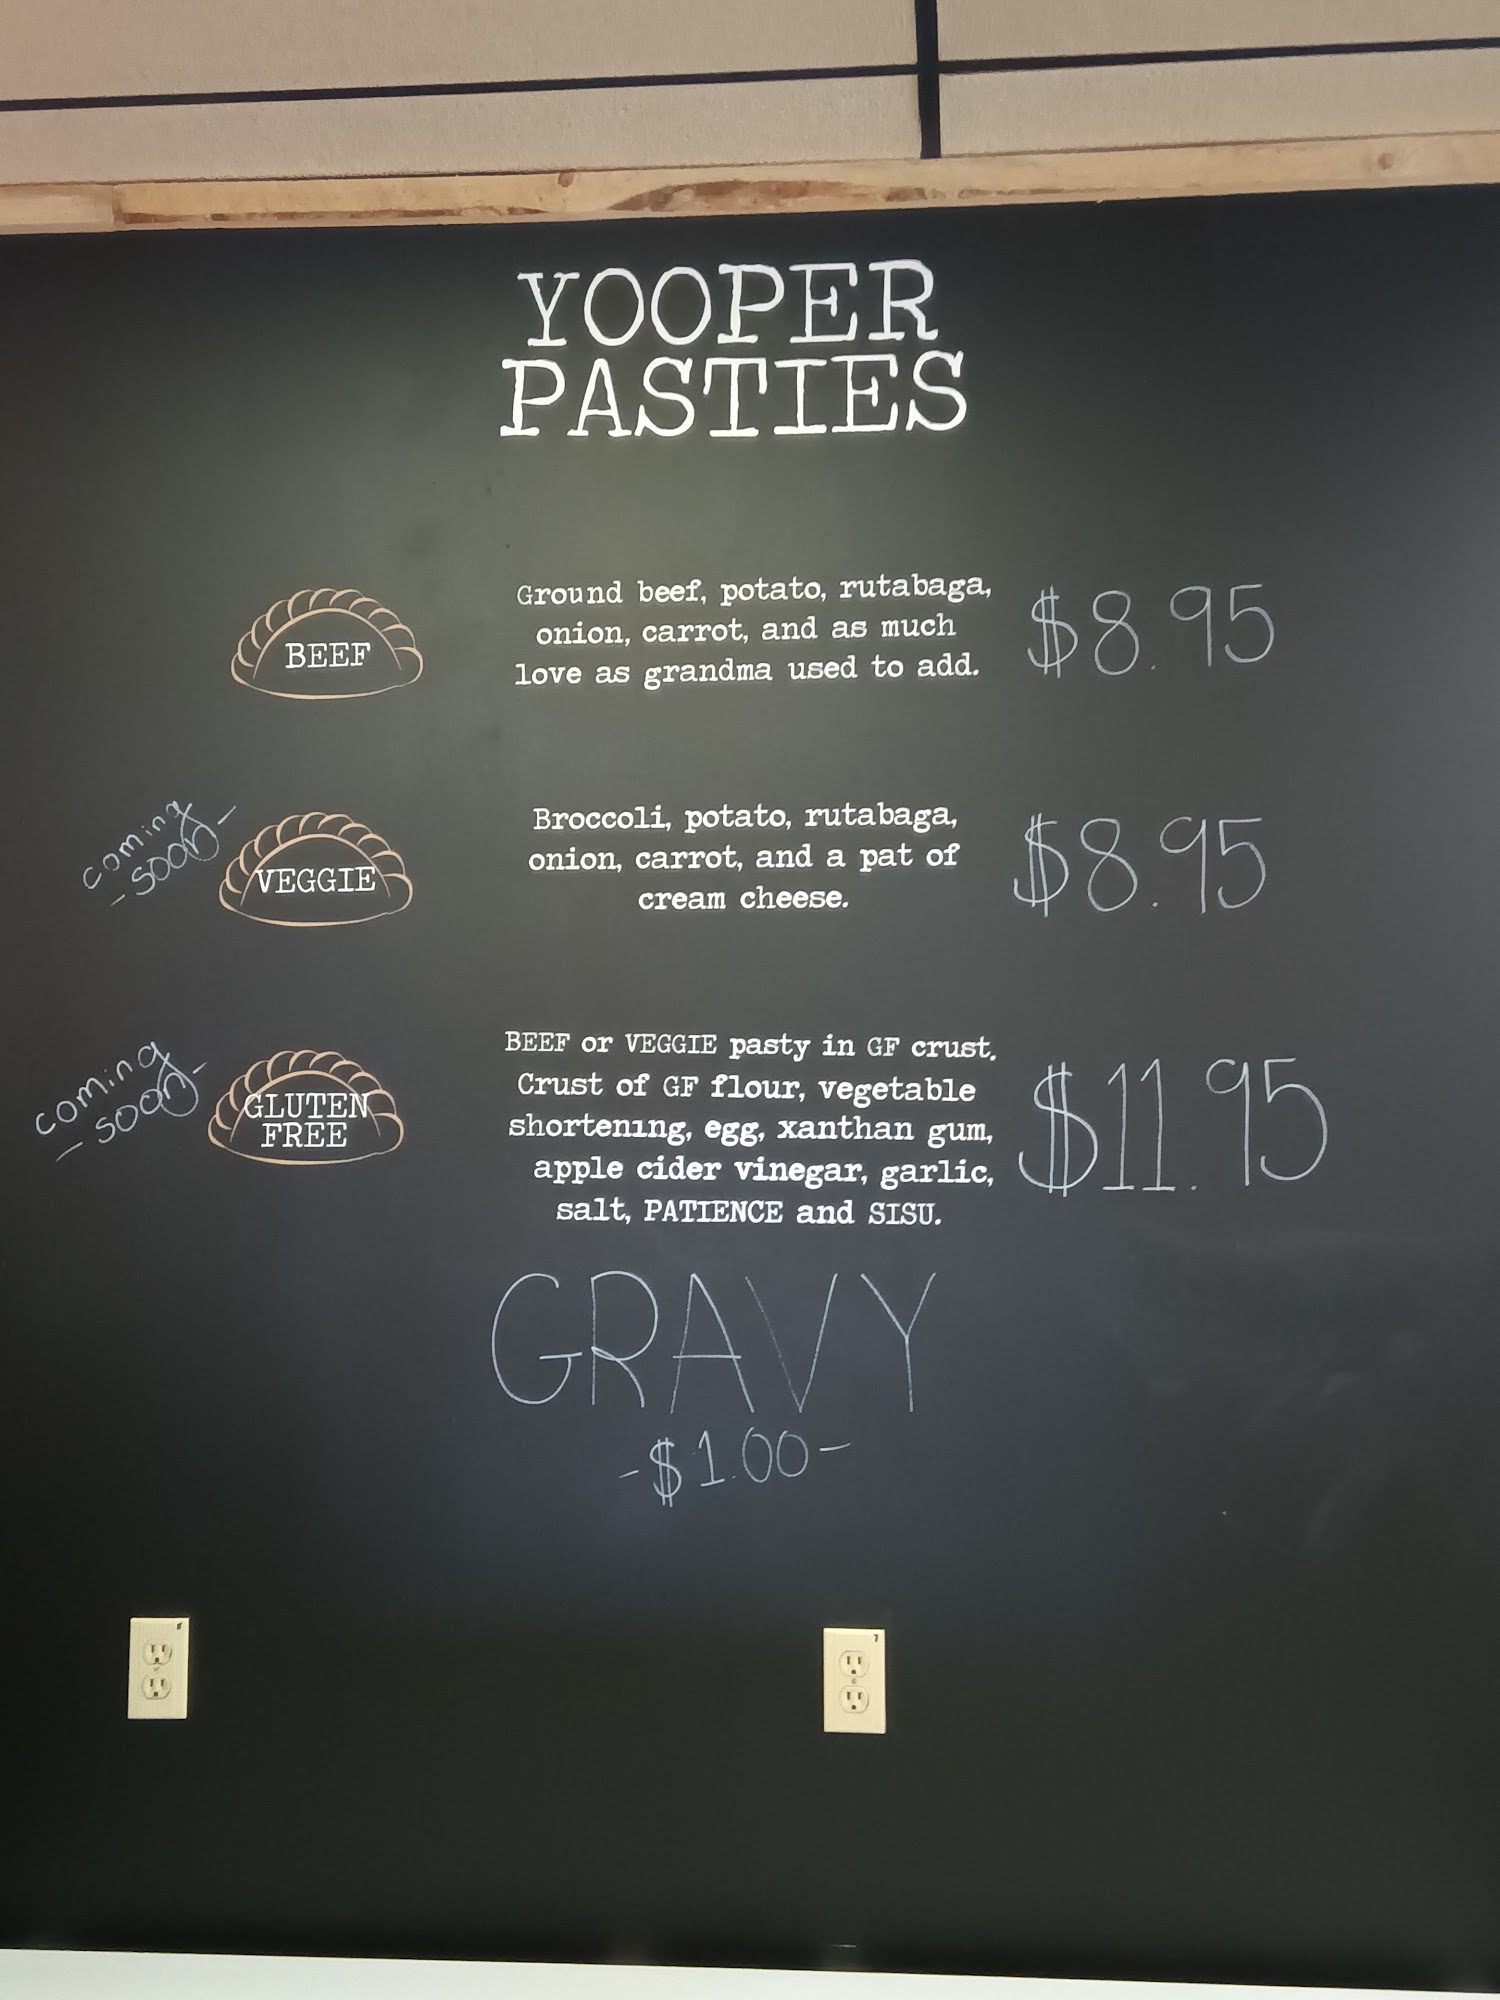 YOOPER
PASTIES
BEEF
Ground beef, potato, rutabaga,
onion, carrot, and as much
love as grandma used to add.
$8.95
coming
-soon-
VEGGIE
Broccoli, potato, rutabaga,
onion, carrot, and a pat of
cream cheese.
$8.95
coming
-soon-
GLUTEN
FREE
BEEF or VEGGIE pasty in GF crust.
Crust of GF flour, vegetable
shortening, egg, xanthan gum,
apple cider vinegar, garlic,
salt, PATIENCE and SISU.
$11.95
GRAVY
-$1.00-
7